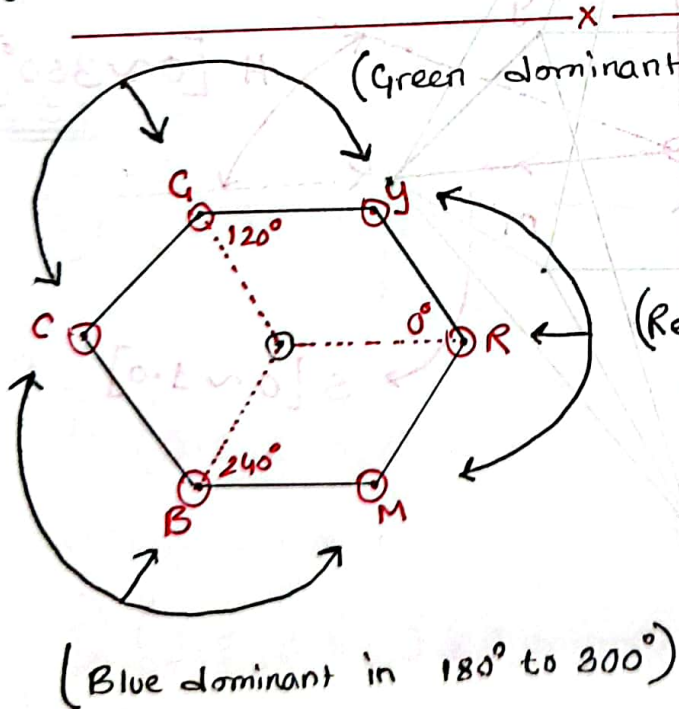 x
(Green dominant
G Y
120°
C 0° R (Re
240°
B M
(Blue dominant in 180° to 300°)